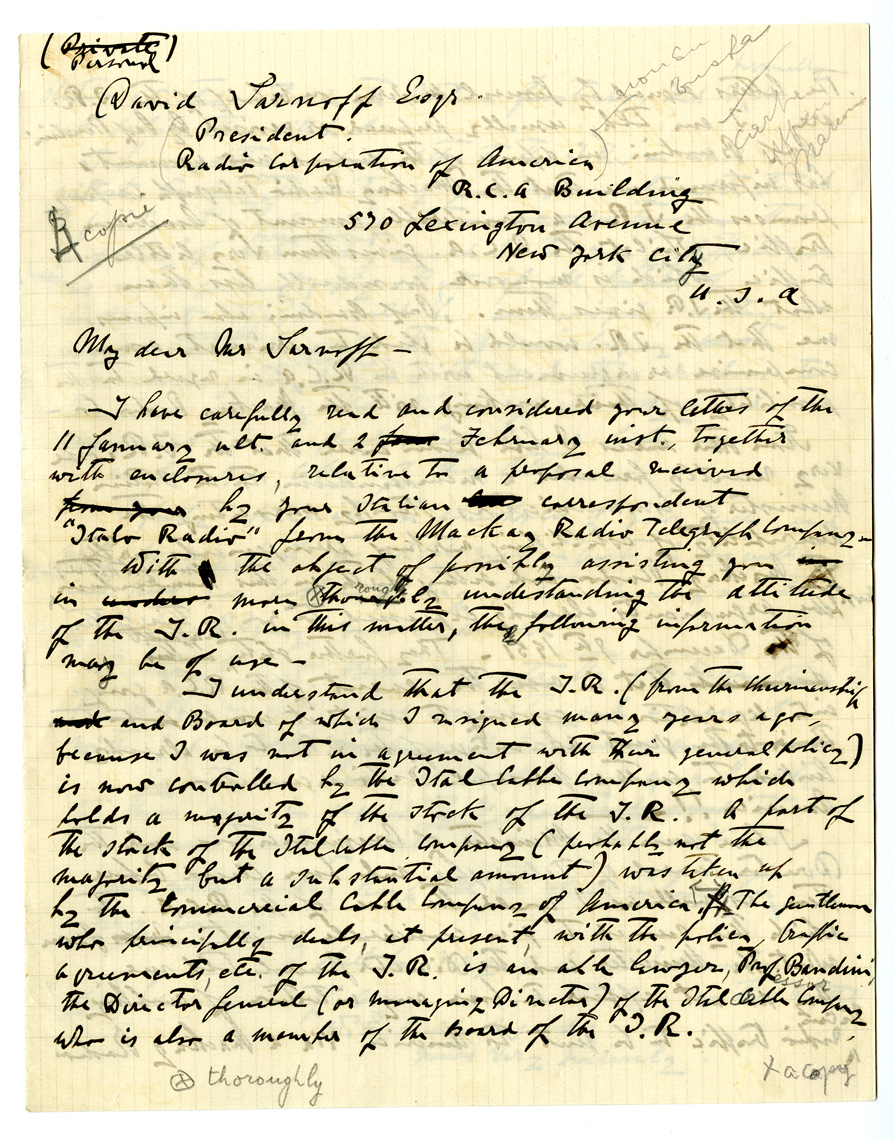 (Private)
Personal
David Sarnoff Esqr.
President.
Radio Corporation of America
R.C.A Building
570 Lexington Avenue
New York City
U.S.A
copie
My dear Mr Sarnoff —
I have carefully read and considered your letters of the
11 January ult. and 2 February inst., together
with enclosures, relative to a proposal received
from your by your Italian correspondent
"Italo Radio" from the Mackay Radio Telegraph Company —
With the object of possibly assisting you in
in more thoroughly understanding the attitude
of the I.R. in this matter, the following information
may be of use —
I understand that the I.R. (from the Chairmanship
and and Board of which I resigned many years ago,
because I was not in agreement with their general policy)
is now controlled by the Ital Cable Company which
holds a majority of the stock of the I.R. A part of
the stock of the Ital Cable Company (probably not the
majority but a substantial amount) was taken up
by the Commercial Cable Company of America. The gentleman
who principally deals, at present, with the policy, traffic
agreements, etc. of the I.R. is an able lawyer, Professor Bandini,
the Director General (or managing Director) of the Ital Cable Company,
who is also a member of the Board of the I.R.
thoroughly
x a copy